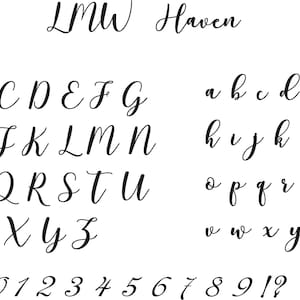 LMW Haven
C D E F G a b c d
J K L M N h i j k
Q R S T U o p q r
X Y Z v w x y
0 1 2 3 4 5 6 7 8 9 !?